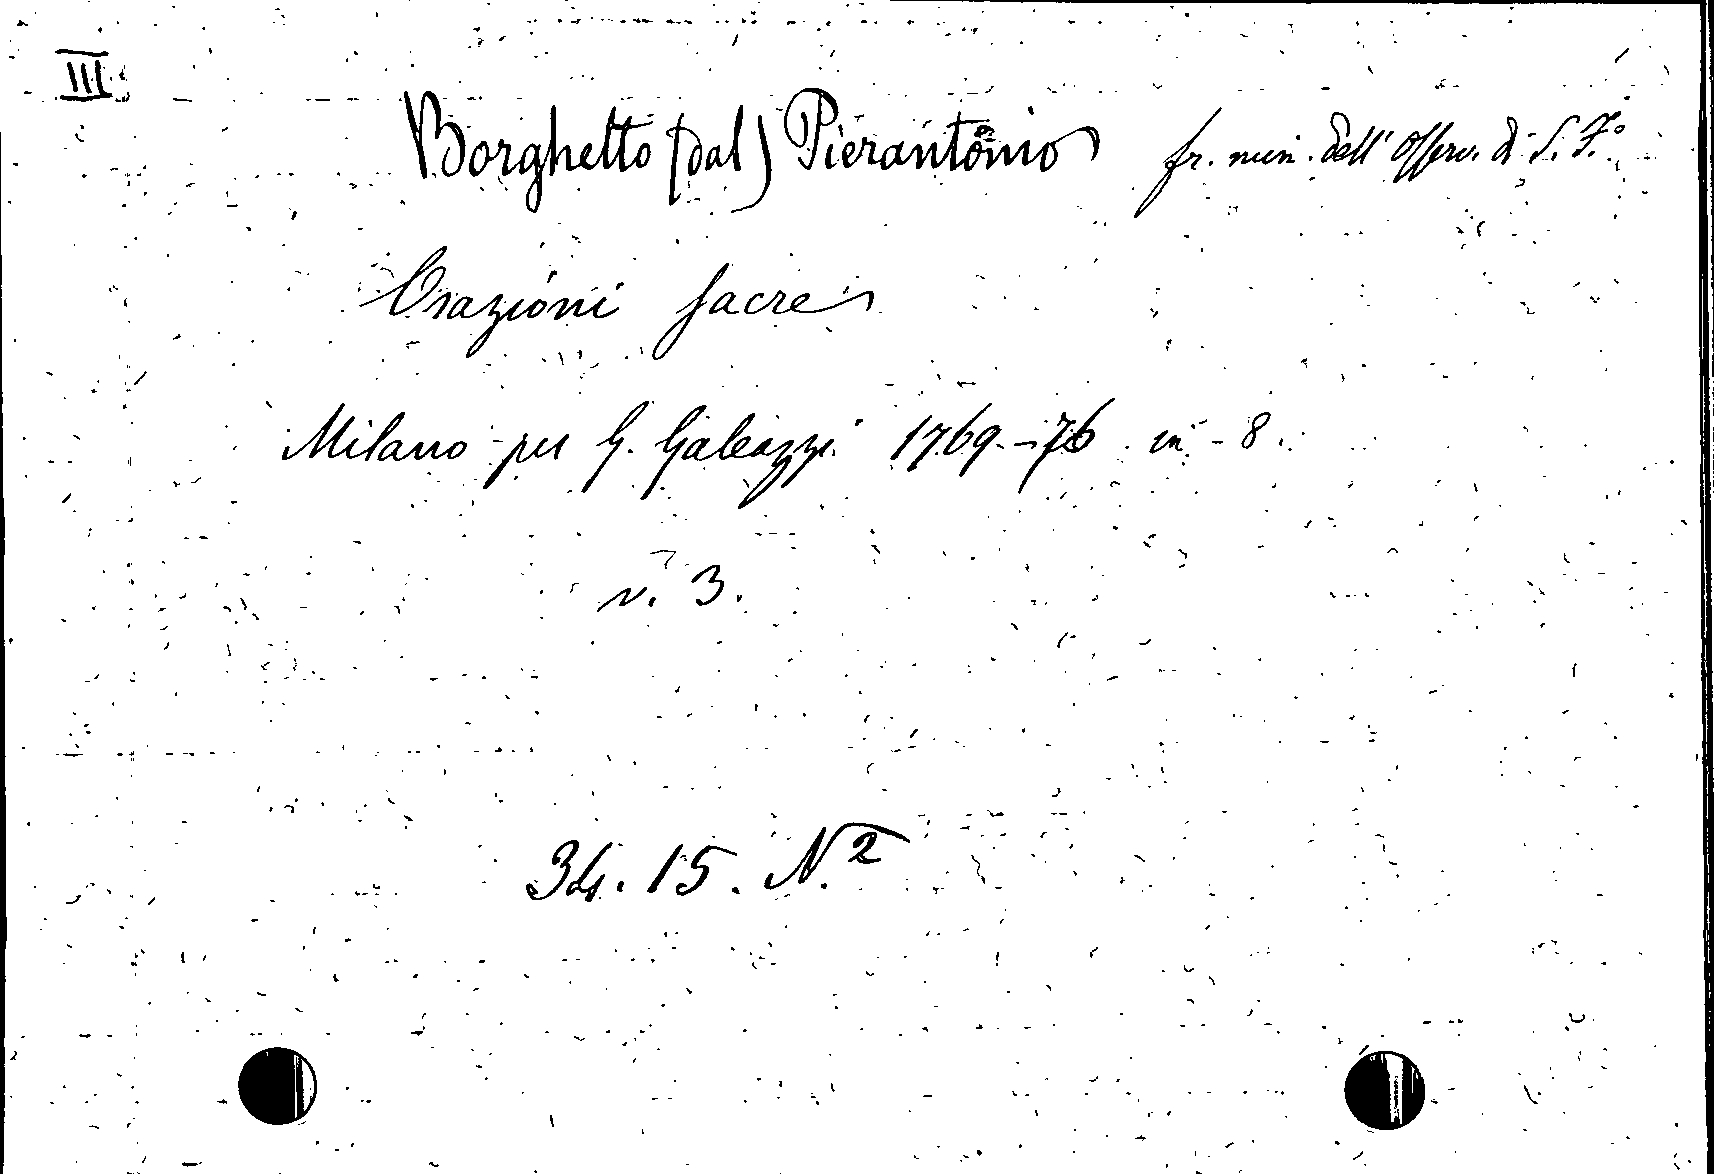 III
Borghetto (dal) Pierantonio fr. min. dell' Osserv. di S. F.º
Orazioni sacre
Milano per G. Galeazzi 1769.-76 in - 8.
v. 3.
34. 15. N. 2